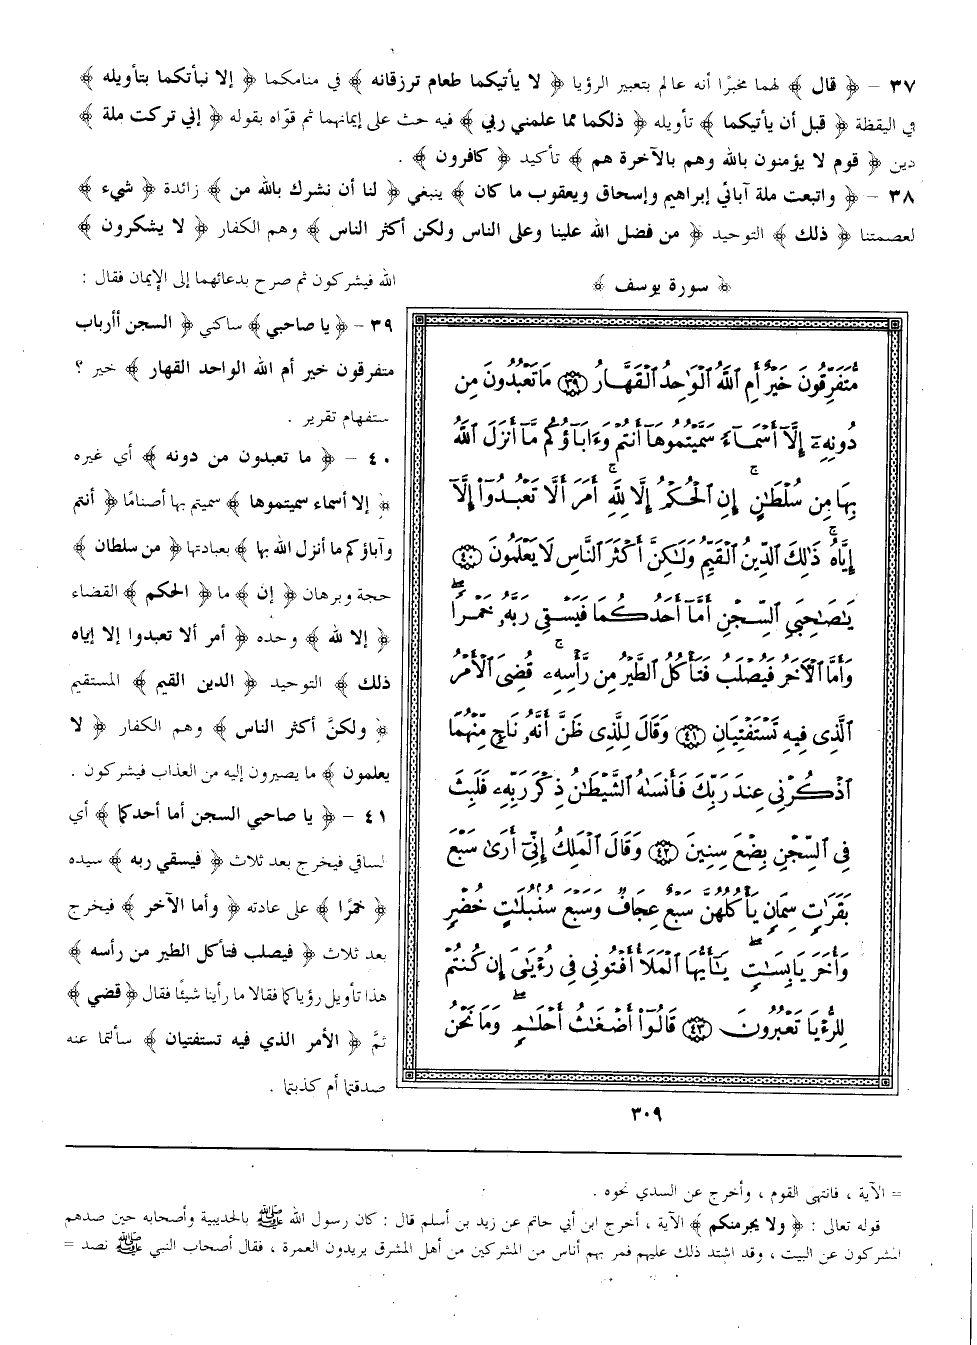 ٣٧ - ﴿ قال ﴾ لهما مخبرًا أنه عالم بتعبير الرؤيا ﴿ لا يأتيكما طعام ترزقانه ﴾ في منامكما ﴿ إلا نبأتكما بتأويله ﴾
في اليقظة ﴿ قبل أن يأتيكما ﴾ تأويله ﴿ ذلكما مما علمني ربي ﴾ فيه حث على إيمانهما ثم قوّاه بقوله ﴿ إني تركت ملة ﴾
دين ﴿ قوم لا يؤمنون بالله وهم بالآخرة هم ﴾ تأكيد ﴿ كافرون ﴾ .
٣٨ - ﴿ واتبعت ملة آبائي إبراهيم وإسحاق ويعقوب ما كان ﴾ ينبغي ﴿ لنا أن نشرك بالله من ﴾ زائدة ﴿ شيء ﴾
لعصمتنا ﴿ ذلك ﴾ التوحيد ﴿ من فضل الله علينا وعلى الناس ولكن أكثر الناس ﴾ وهم الكفار ﴿ لا يشكرون ﴾
الله فيشركون ثم صرح بدعائهما إلى الإيمان فقال :
٣٩ - ﴿ يا صاحبي ﴾ ساكني ﴿ السجن أأرباب
متفرقون خير أم الله الواحد القهار ﴾ خير ؟
ستفهام تقرير .
٤٠ - ﴿ ما تعبدون من دونه ﴾ أي غيره
﴿ إلا أسماء سميتموها ﴾ سميتم بها أصنامًا ﴿ أنتم
وآباؤكم ما أنزل الله بها ﴾ بعبادتها ﴿ من سلطان ﴾
حجة وبرهان ﴿ إن ﴾ ما ﴿ الحكم ﴾ القضاء
﴿ إلا لله ﴾ وحده ﴿ أمر ألا تعبدوا إلا إياه
ذلك ﴾ التوحيد ﴿ الدين القيم ﴾ المستقيم
﴿ ولكنَّ أكثر الناس ﴾ وهم الكفار ﴿ لا
يعلمون ﴾ ما يصيرون إليه من العذاب فيشركون .
٤١ - ﴿ يا صاحبي السجن أما أحدكما ﴾ أي
لساقي فيخرج بعد ثلاث ﴿ فيسقي ربه ﴾ سيده
﴿ خمرًا ﴾ على عادته ﴿ وأما الآخر ﴾ فيخرج
بعد ثلاث ﴿ فيصلب فتأكل الطير من رأسه ﴾
هذا تأويل رؤياكما فقالا ما رأينا شيئًا فقال ﴿ قضي ﴾
تمَّ ﴿ الأمر الذي فيه تستفتيان ﴾ سألتما عنه
صدقتما أم كذبتما .
﴿ سورة يوسف ﴾
مُّتَفَرِّقُونَ خَيْرٌ أَمِ اللَّهُ الْوَاحِدُ الْقَهَّارُ ٣٩ مَا تَعْبُدُونَ مِن
دُونِهِ إِلَّا أَسْمَاءً سَمَّيْتُمُوهَا أَنتُمْ وَءَابَاؤُكُم مَّا أَنزَلَ اللَّهُ
بِهَا مِن سُلْطَانٍ إِنِ الْحُكْمُ إِلَّا لِلَّهِ أَمَرَ أَلَّا تَعْبُدُوا إِلَّا
إِيَّاهُ ذَٰلِكَ الدِّينُ الْقَيِّمُ وَلَٰكِنَّ أَكْثَرَ النَّاسِ لَا يَعْلَمُونَ ٤٠
يَٰصَاحِبَيِ السِّجْنِ أَمَّا أَحَدُكُمَا فَيَسْقِي رَبَّهُ خَمْرًا
وَأَمَّا الْآخَرُ فَيُصْلَبُ فَتَأْكُلُ الطَّيْرُ مِن رَّأْسِهِ قُضِيَ الْأَمْرُ
الَّذِي فِيهِ تَسْتَفْتِيَانِ ٤١ وَقَالَ لِلَّذِي ظَنَّ أَنَّهُ نَاجٍ مِّنْهُمَا
اذْكُرْنِي عِندَ رَبِّكَ فَأَنسَاهُ الشَّيْطَانُ ذِكْرَ رَبِّهِ فَلَبِثَ
فِي السِّجْنِ بِضْعَ سِنِينَ ٤٢ وَقَالَ الْمَلِكُ إِنِّي أَرَىٰ سَبْعَ
بَقَرَاتٍ سِمَانٍ يَأْكُلُهُنَّ سَبْعٌ عِجَافٌ وَسَبْعَ سُنبُلَاتٍ خُضْرٍ
وَأُخَرَ يَابِسَاتٍ يَٰأَيُّهَا الْمَلَأُ أَفْتُونِي فِي رُءْيَايَ إِن كُنتُمْ
لِلرُّءْيَا تَعْبُرُونَ ٤٣ قَالُوا أَضْغَاثُ أَحْلَامٍ وَمَا نَحْنُ
٣٠٩
= الآية ، فانتهى القوم ، وأخرج عن السدي نحوه .
قوله تعالى : ﴿ ولا يجرمنكم ﴾ الآية ، أخرج ابن أبي حاتم عن زيد بن أسلم قال : كان رسول الله ﷺ بالحديبية وأصحابه حين صدهم
المشركون عن البيت ، وقد اشتد ذلك عليهم فمر بهم أناس من المشركين من أهل المشرق يريدون العمرة ، فقال أصحاب النبي ﷺ نصد =